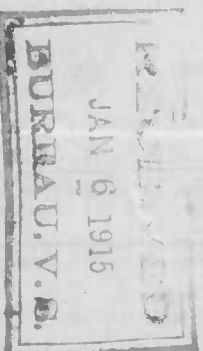 RECEIVED
JAN 6 1915
BUREAU. V. S.